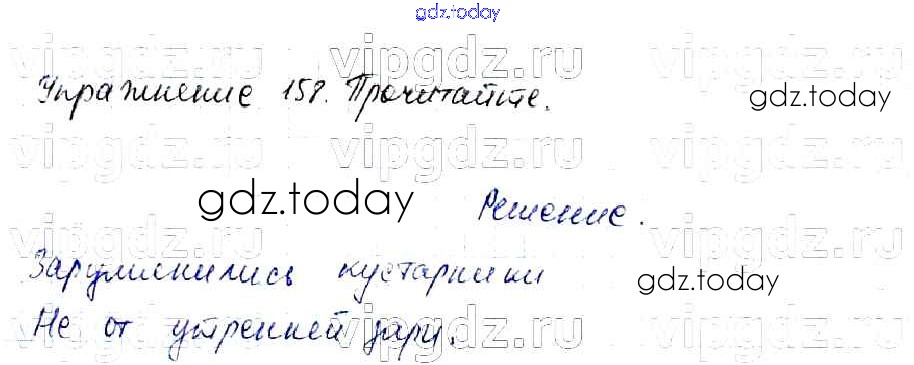 gdz.today
vipgdz.ru vipgdz.ru vipgdz.ru
Упражнение 158. Прочитайте.
gdz.today
vipgdz.ru vipgdz.ru vipgdz.ru
gdz.today
Решение.
Зарумянились кустарники
gdz.today
Не от утренней зари.
vipgdz.ru vipgdz.ru vipgdz.ru